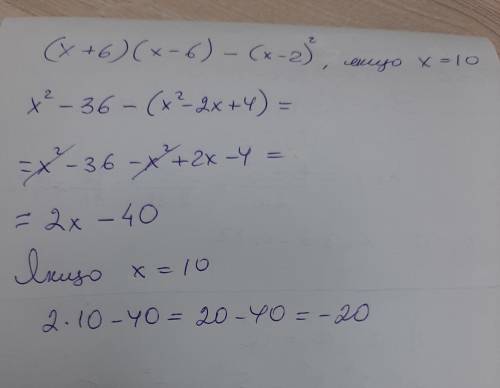 (x+6)(x-6)-(x-2)², якщо x=10
x²-36-(x²-2x+4)=
=x²-36-x²+2x-4=
=2x-40
Якщо x=10
2·10-40=20-40=-20